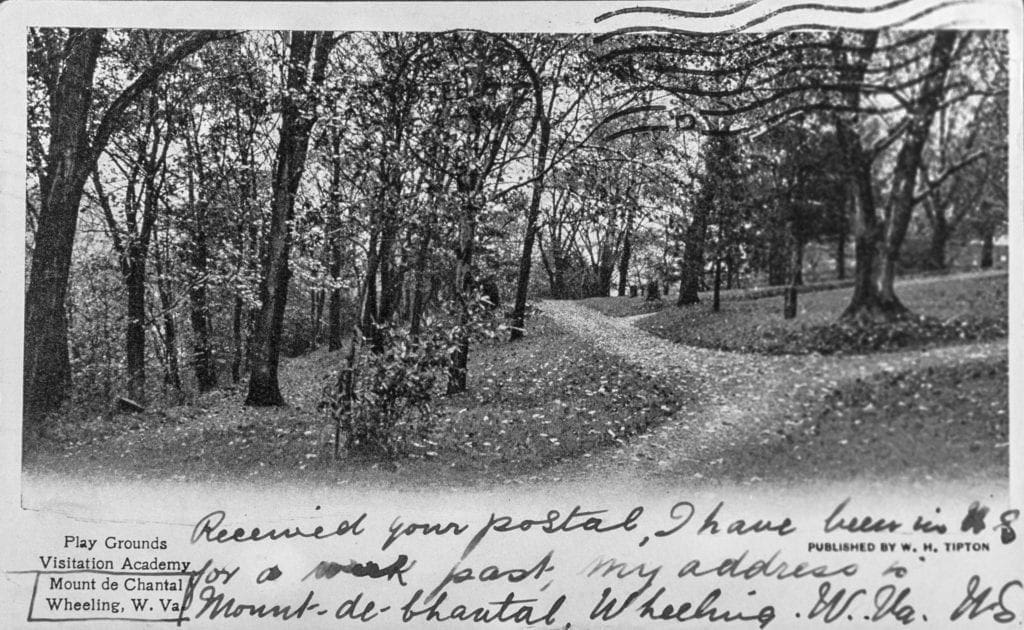 Received your postal, I have been in U S
PUBLISHED BY W. H. TIPTON
for a week past, my address is
Mount-de-Chantal, Wheeling. W. Va. U.S.
Play Grounds
Visitation Academy
Mount de Chantal
Wheeling, W. Va